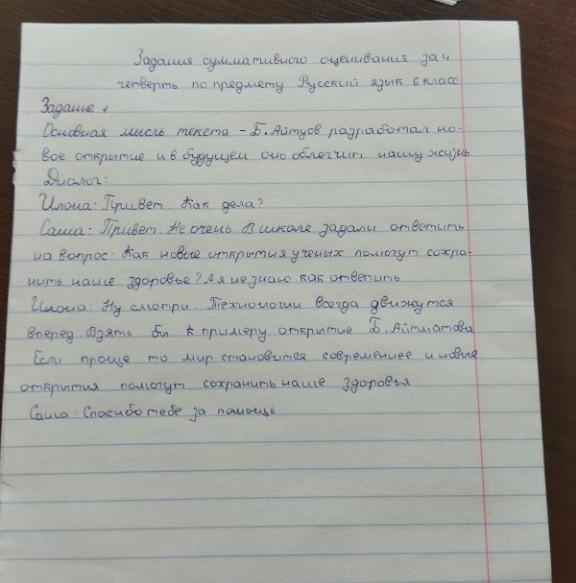 Задания суммативного оценивания за 4
четверть по предмету Русский язык 6 класс
Задание 1
Основная мысль текста - Б. Айтуов разработал но-
вое открытие и в будущем оно облегчит нашу жизнь
Диалог:
Илона: Привет. Как дела?
Саша: Привет. Не очень. В школе задали ответить
на вопрос: Как новые открытия ученых помогут сохра-
нить наше здоровье? А я не знаю как ответить
Илона: Ну смотри. Технологии всегда движутся
вперед. Взять бы к примеру открытие Б. Айтматова
Если проще то мир становится современнее и новые
открытия помогут сохранить наше здоровья
Саша: Спасибо тебе за помощь